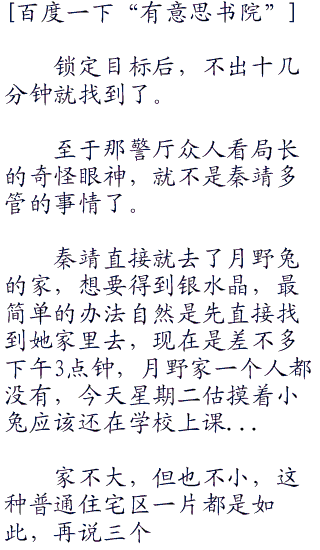 [百度一下“有意思书院”]
锁定目标后，不出十几
分钟就找到了。
至于那警厅众人看局长
的奇怪眼神，就不是秦靖多
管的事情了。
秦靖直接就去了月野兔
的家，想要得到银水晶，最
简单的办法自然是先直接找
到她家里去，现在是差不多
下午3点钟，月野家一个人都
没有，今天星期二估摸着小
兔应该还在学校上课...
家不大，但也不小，这
种普通住宅区一片都是如
此，再说三个